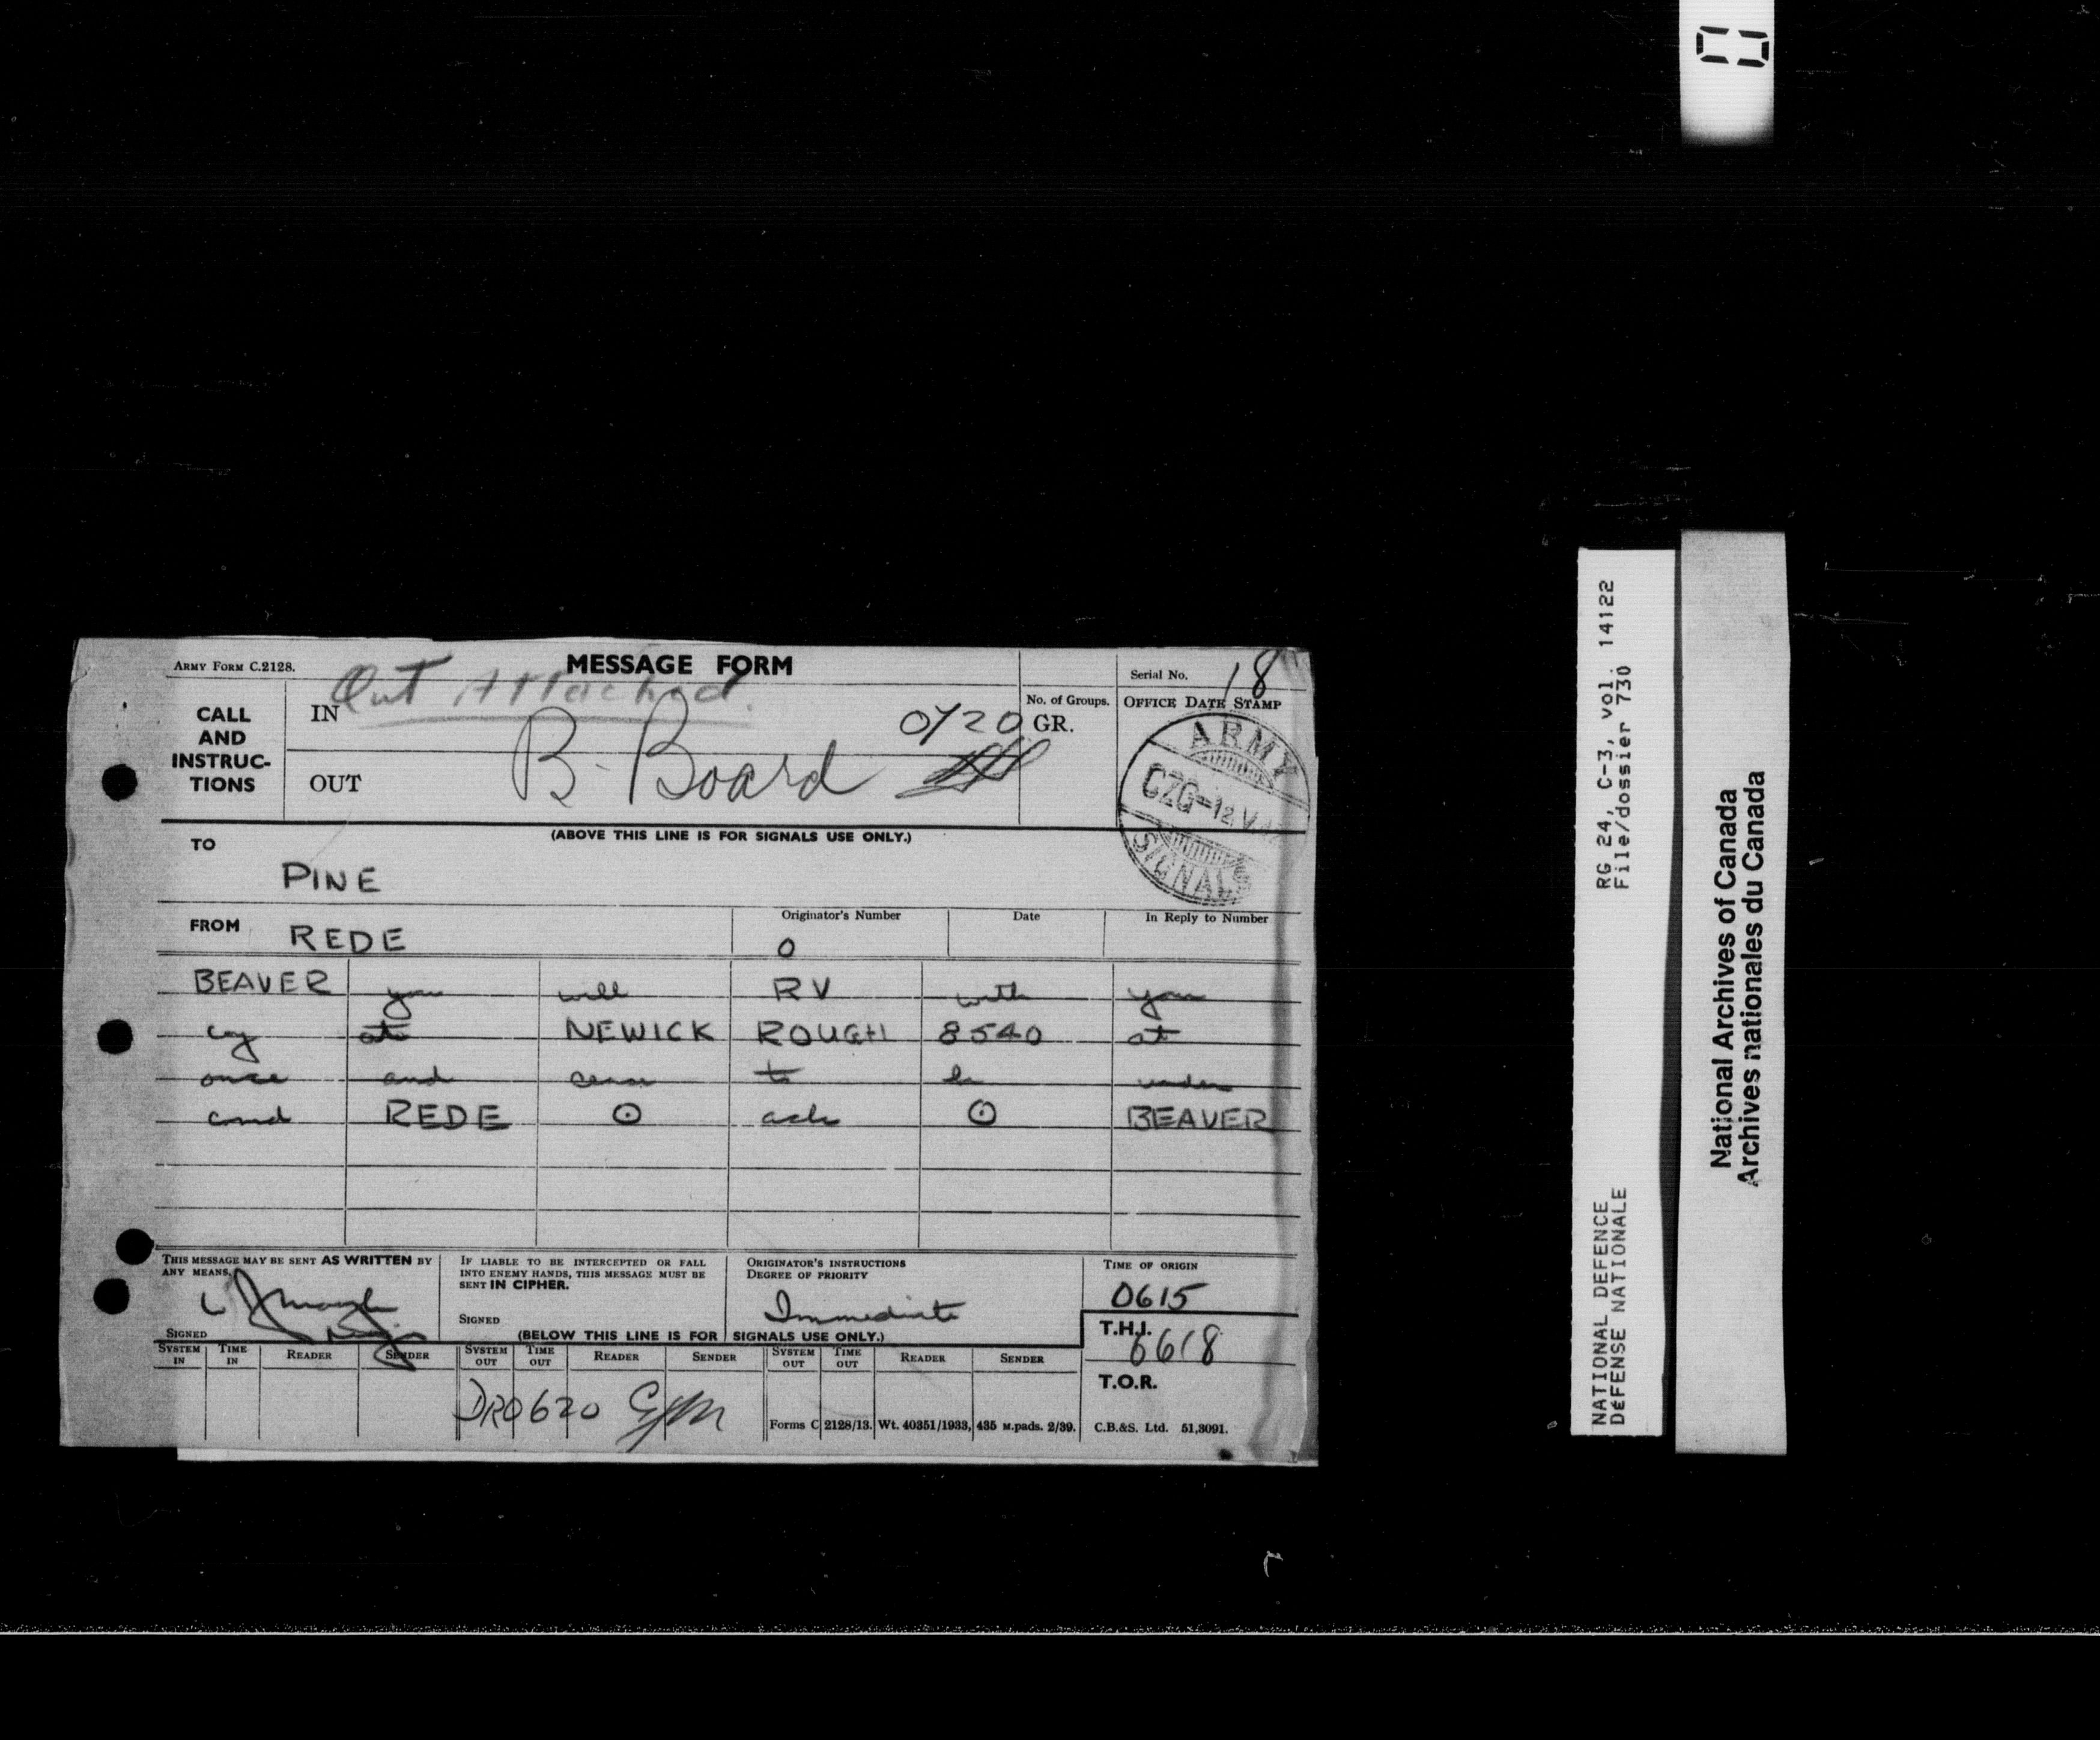 ARMY FORM C.2128.
MESSAGE FORM
Serial No. 18
Out Attached.
CALL AND INSTRUC-TIONS
IN
0/20
No. of Groups.
GR.
OFFICE DATE STAMP
OUT
B-Board
ARMY
SIGNALS
(ABOVE THIS LINE IS FOR SIGNALS USE ONLY.)
TO
PINE
FROM REDE
Originator's Number
O
Date
In Reply to Number
BEAVER you will RV with your
coy at NEWICK ROUGH 8540 at
once and cease to be under
comd REDE ⊙ ack ⊙ BEAVER
THIS MESSAGE MAY BE SENT AS WRITTEN BY ANY MEANS.
SIGNED
IF LIABLE TO BE INTERCEPTED OR FALL INTO ENEMY HANDS, THIS MESSAGE MUST BE SENT IN CIPHER.
SIGNED
ORIGINATOR'S INSTRUCTIONS
DEGREE OF PRIORITY
Immediate
TIME OF ORIGIN
0615
(BELOW THIS LINE IS FOR SIGNALS USE ONLY.)
T.H.I.
0618
SYSTEM IN TIME IN READER SENDER SYSTEM OUT TIME OUT READER SENDER SYSTEM OUT TIME OUT READER SENDER
T.O.R.
DR0620
Forms C 2128/13. Wt. 40351/1933, 435 M.pads. 2/39. C.B.&S. Ltd. 51,3091.
RG 24, C-3, vol. 14122
File/dossier 730
NATIONAL DEFENCE
DEFENSE NATIONALE
National Archives of Canada
Archives nationales du Canada